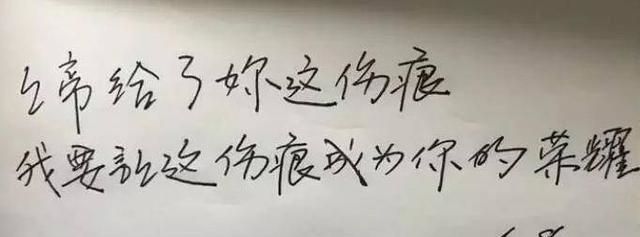 上帝给了妳这伤痕
我要让这伤痕成为你的荣耀